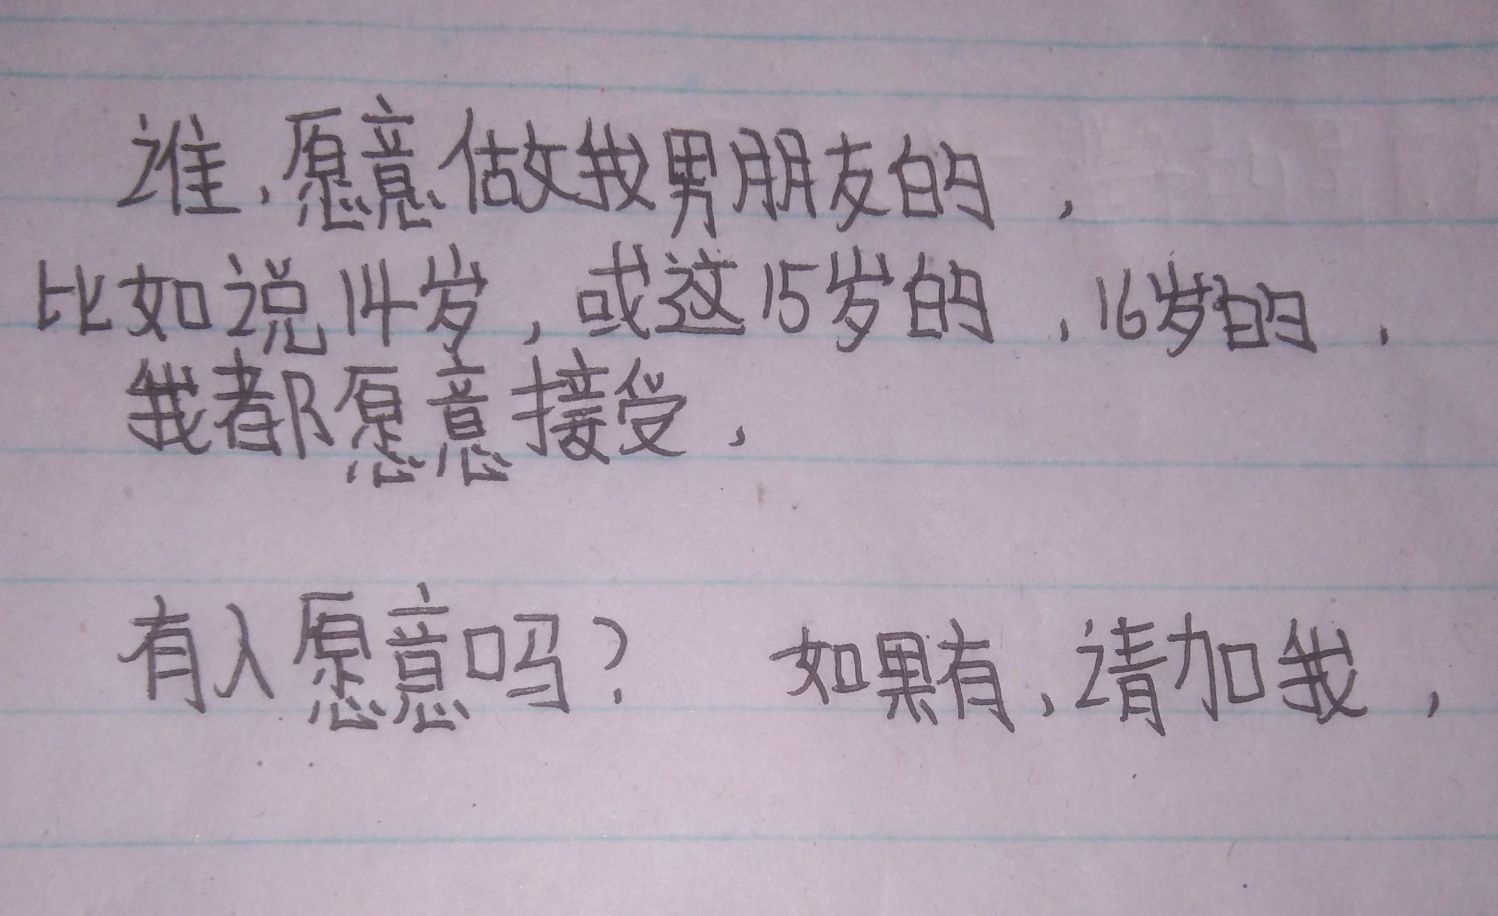 谁,愿意做我男朋友的,
比如说14岁,或这15岁的,16岁的,
我都愿意接受,
有人愿意吗? 如果有,请加我,